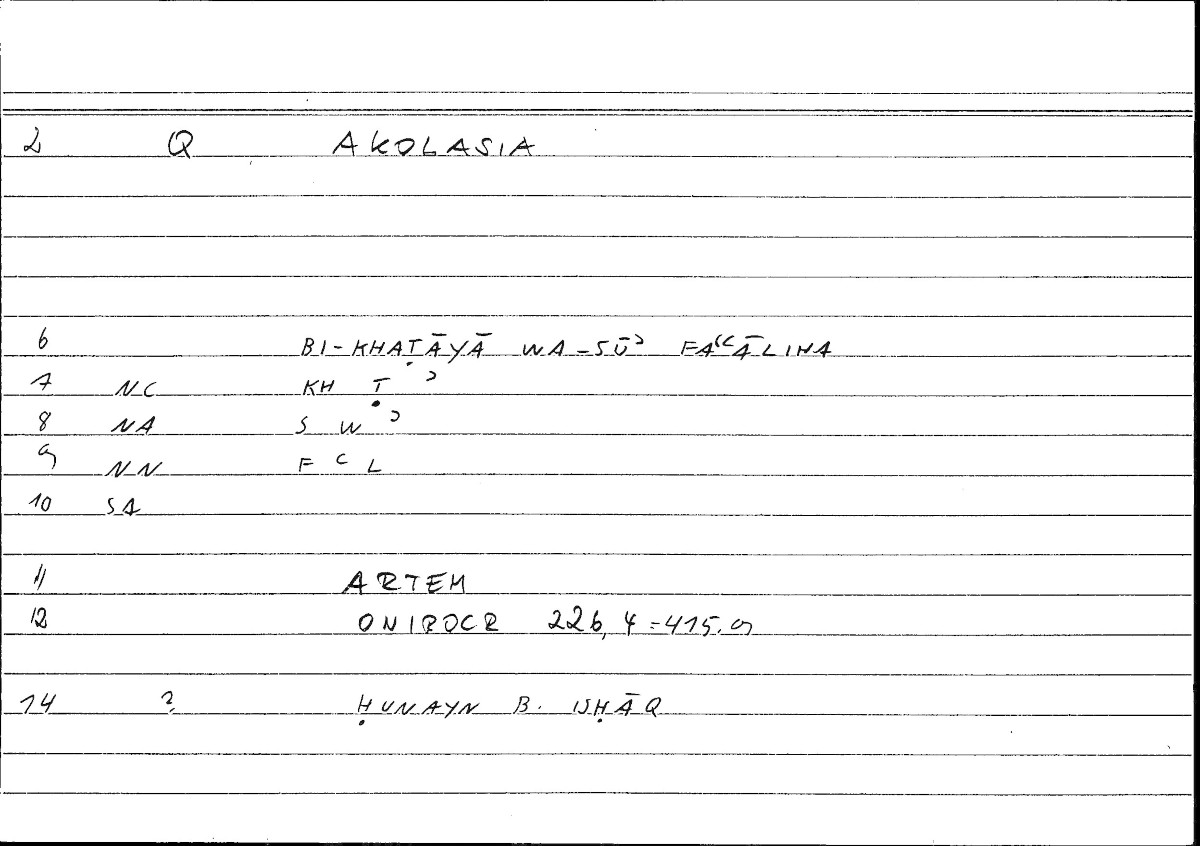 2 Q AKOLASIA
6 BI-KHAṬĀYĀ WA-SŪʾ FAʿʿĀLIHA
7 NC KH Ṭ ʾ
8 NA S W ʾ
9 NN F ʿ L
10 SA
11 ARTEM
12 ONIROCR 226,4=415.9
14 ? ḤUNAYN B. ISḤĀQ